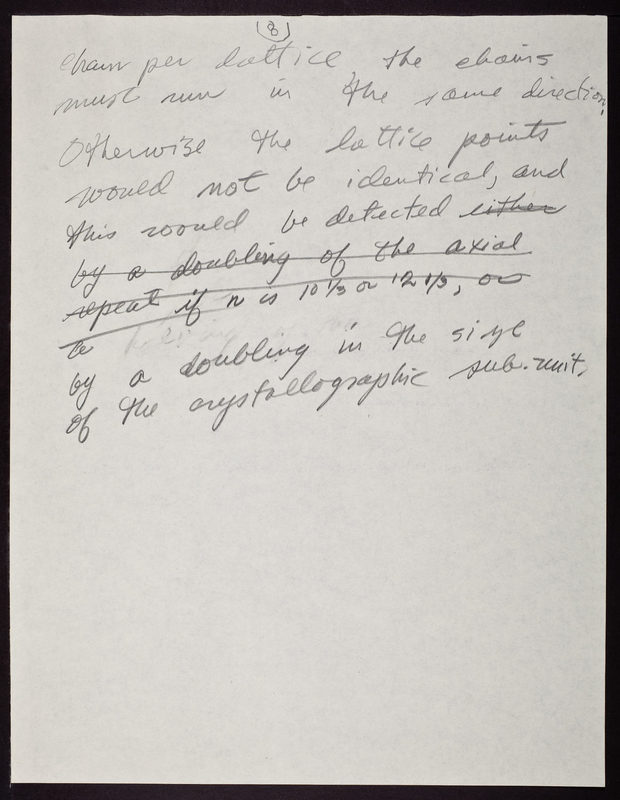 8
chain per lattice the chains
must run in the same direction.
Otherwise the lattice points
would not be identical, and
this would be detected either
by a doubling of the axial
repeat if n is 10 1/3 or 12 1/3, or
by a doubling in the size
of the crystallographic sub-unit.